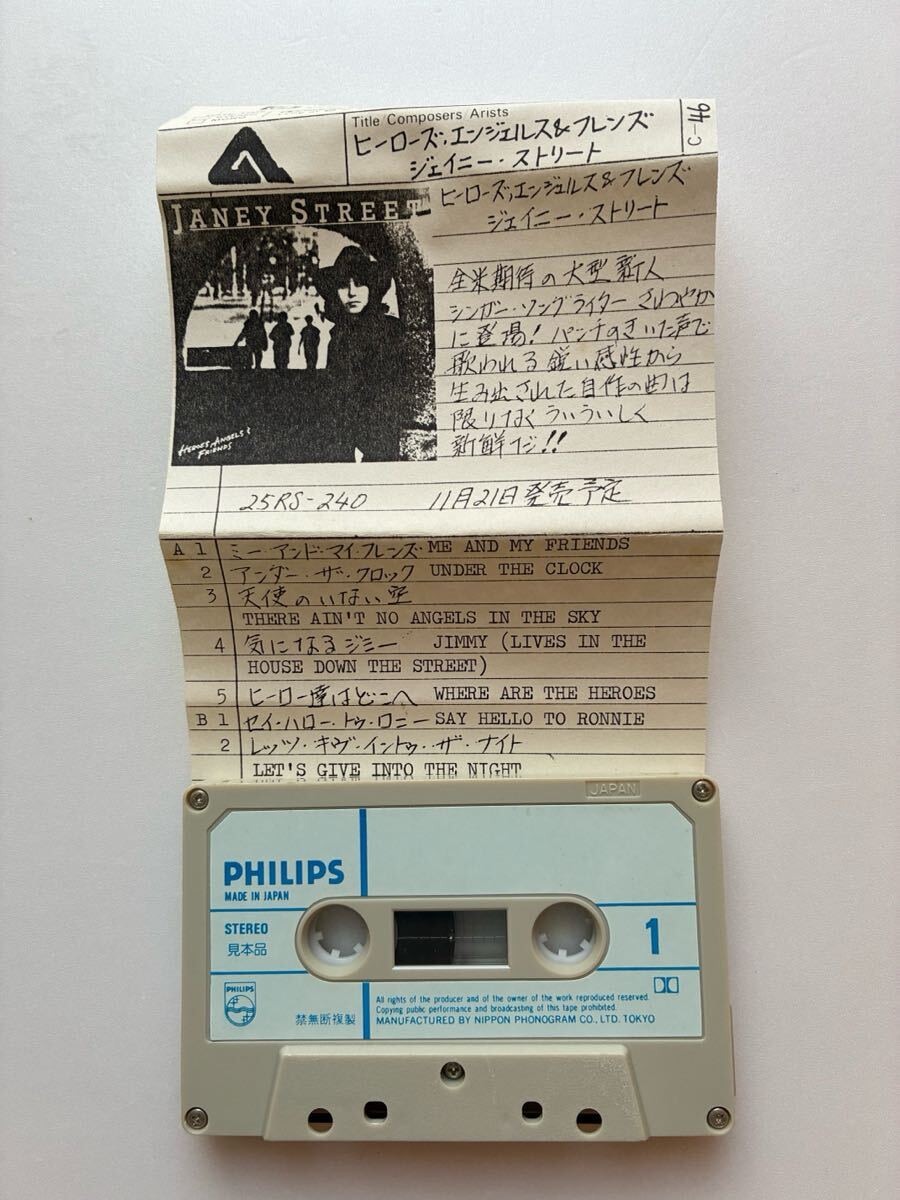 Title/Composers/Arists
ヒーローズ,エンジェルス&フレンズ
ジェイニー・ストリート
C-46
JANEY STREET
HEROES, ANGELS &
FRIENDS
ヒーローズ,エンジェルス&フレンズ
ジェイニー・ストリート
全米期待の大型新人
シンガー・ソングライター さわやか
に登場! パンチのきいた声で
歌われる鋭い感性から
生み出された自作の曲は
限りなくういういしく
新鮮だ!!
25RS-240 11月21日発売予定
A 1 ミー・アンド・マイ・フレンズ ME AND MY FRIENDS
2 アンダー・ザ・クロック UNDER THE CLOCK
3 天使のいない空
THERE AIN'T NO ANGELS IN THE SKY
4 気になるジミー JIMMY (LIVES IN THE
HOUSE DOWN THE STREET)
5 ヒーロー達はどこへ WHERE ARE THE HEROES
B 1 セイ・ハロー・トゥ・ロニー SAY HELLO TO RONNIE
2 レッツ・ギヴ・イントゥ・ザ・ナイト
LET'S GIVE INTO THE NIGHT
JAPAN
PHILIPS
MADE IN JAPAN
STEREO
見本品
1
PHILIPS
禁無断複製
All rights of the producer and of the owner of the work reproduced reserved.
Copying public performance and broadcasting of this tape prohibited.
MANUFACTURED BY NIPPON PHONOGRAM CO., LTD. TOKYO